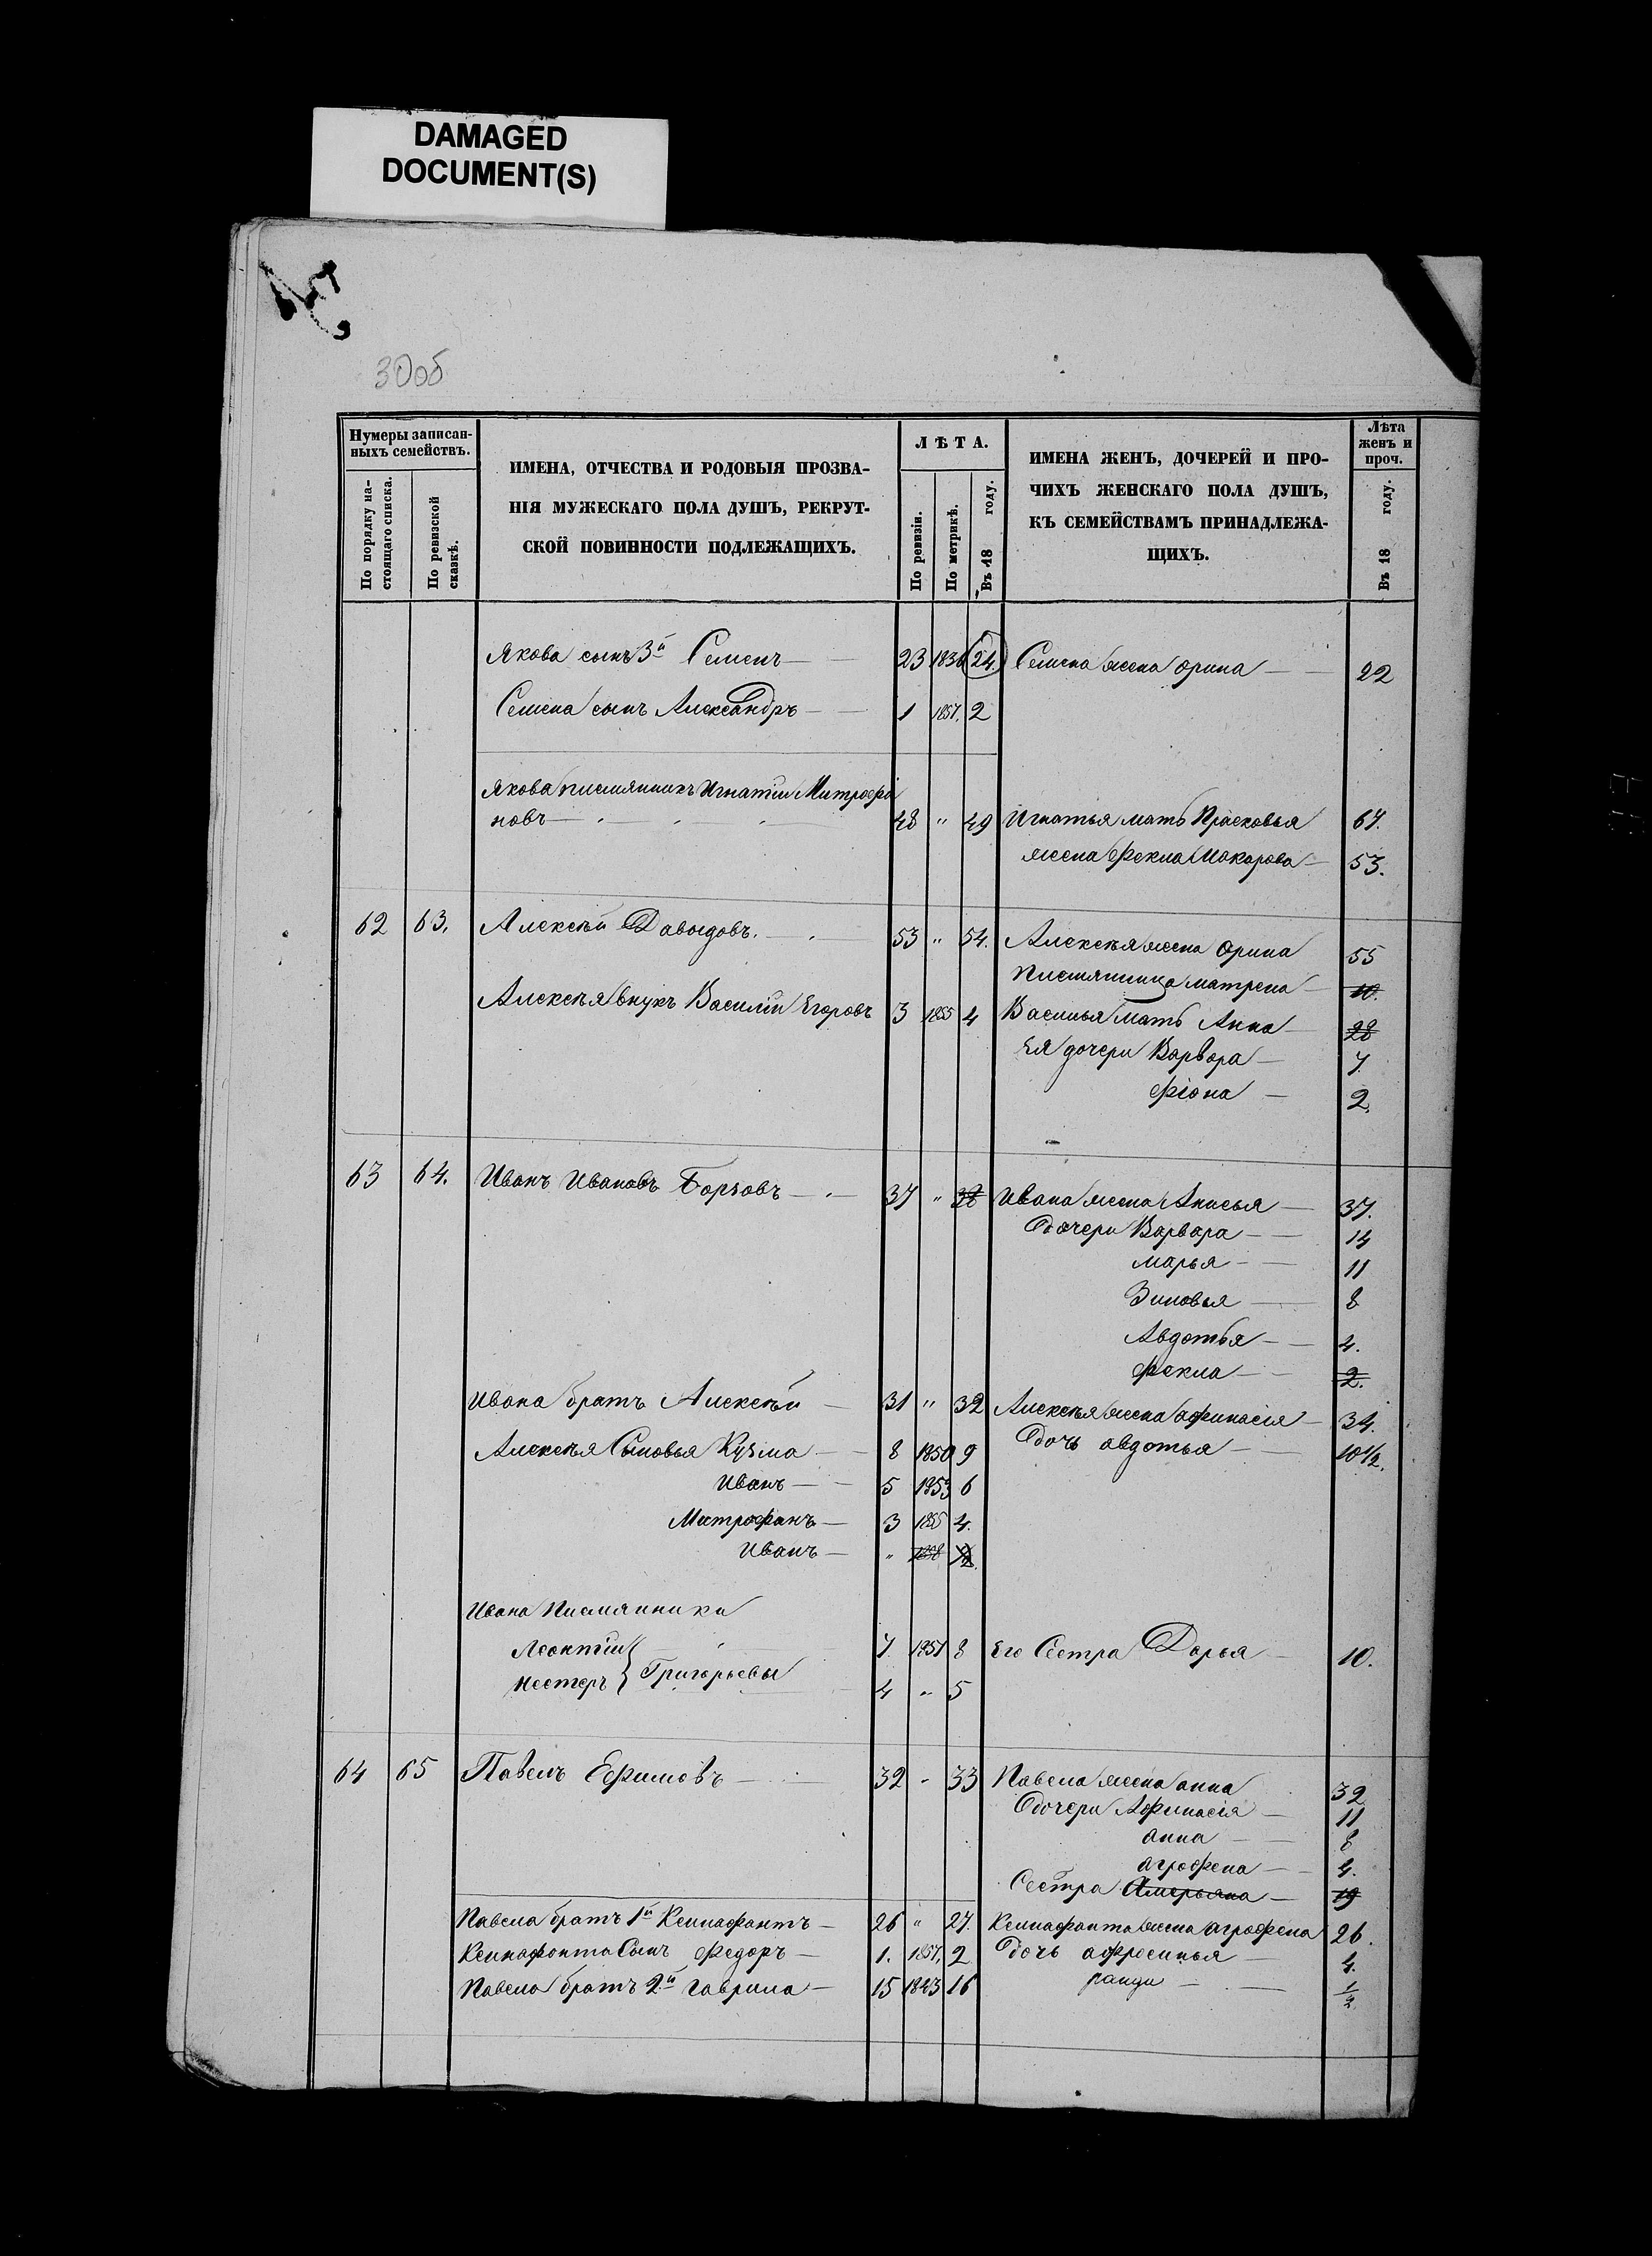 DAMAGED
DOCUMENT(S)
30об
Нумеры записан-
ныхъ семействъ.
По порядку на-
стоящаго списка.
По ревизской
сказкѣ.
ИМЕНА, ОТЧЕСТВА И РОДОВЫЯ ПРОЗВА-
НІЯ МУЖЕСКАГО ПОЛА ДУШЪ, РЕКРУТ-
СКОЙ ПОВИННОСТИ ПОДЛЕЖАЩИХЪ.
ЛѢТА.
По ревизіи.
По метрикѣ.
Въ 18 году.
ИМЕНА ЖЕНЪ, ДОЧЕРЕЙ И ПРО-
ЧИХЪ ЖЕНСКАГО ПОЛА ДУШЪ,
КЪ СЕМЕЙСТВАМЪ ПРИНАДЛЕЖА-
ЩИХЪ.
Лѣта
женъ и
проч.
Въ 18 году.
Якова сынъ 3й Семенъ — 23 1836 24. Семена жена Орина — 22
Семена сынъ Александръ — 1 1857. 2
Якова племянникъ Игнатій Митрофа
новъ — 48 " 49 Игнатья мать Прасковья 67.
жена Фекла Макарова — 53.
62 63. Алексѣй Давыдовъ. — 53 " 54. Алексѣя жена Орина 55
племянница матрена — 10.
Алексѣя внукъ Василій Егоровъ 3 1855 4 Василья мать Анна — 28
Ея дочери Варвора — 7.
Фіона — 2.
63 64. Иванъ Ивановъ Борзовъ — 37 " 38 Ивана жена Анисья — 37.
Дочери Варвара — 14
Марья — 11
Зиновья — 8
Авдотья — 4.
Фекла — 2.
Ивана братъ Алексѣй — 31 " 32 Алексѣя жена Афинасія — 34.
Алексѣя Сыновья Кузма — 8 1850 9 Дочь авдотья — 10½.
Иванъ — 5 1853 6
Митрофанъ — 3 1855 4.
Иванъ — " 1858
Ивана Племянники
Леонтій — 7. 1851 8 Его Сестра Дарья — 10.
Нестеръ } Григорьевы 4 " 5
64 65 Павелъ Ефимовъ — 32 " 33 Павела жена анна 32
Дочери Афинасія — 11
анна — 8
агрофена — 4.
Сестра — 19
Павела братъ 1й Ксинафантъ — 26 " 27. Ксинафанта жена агрофена 26.
Ксинафонта Сынъ Федоръ — 1. 1857. 2 Дочь афросинья — 4.
Павела братъ 2й Гаврила — 15 1843 16 — ½